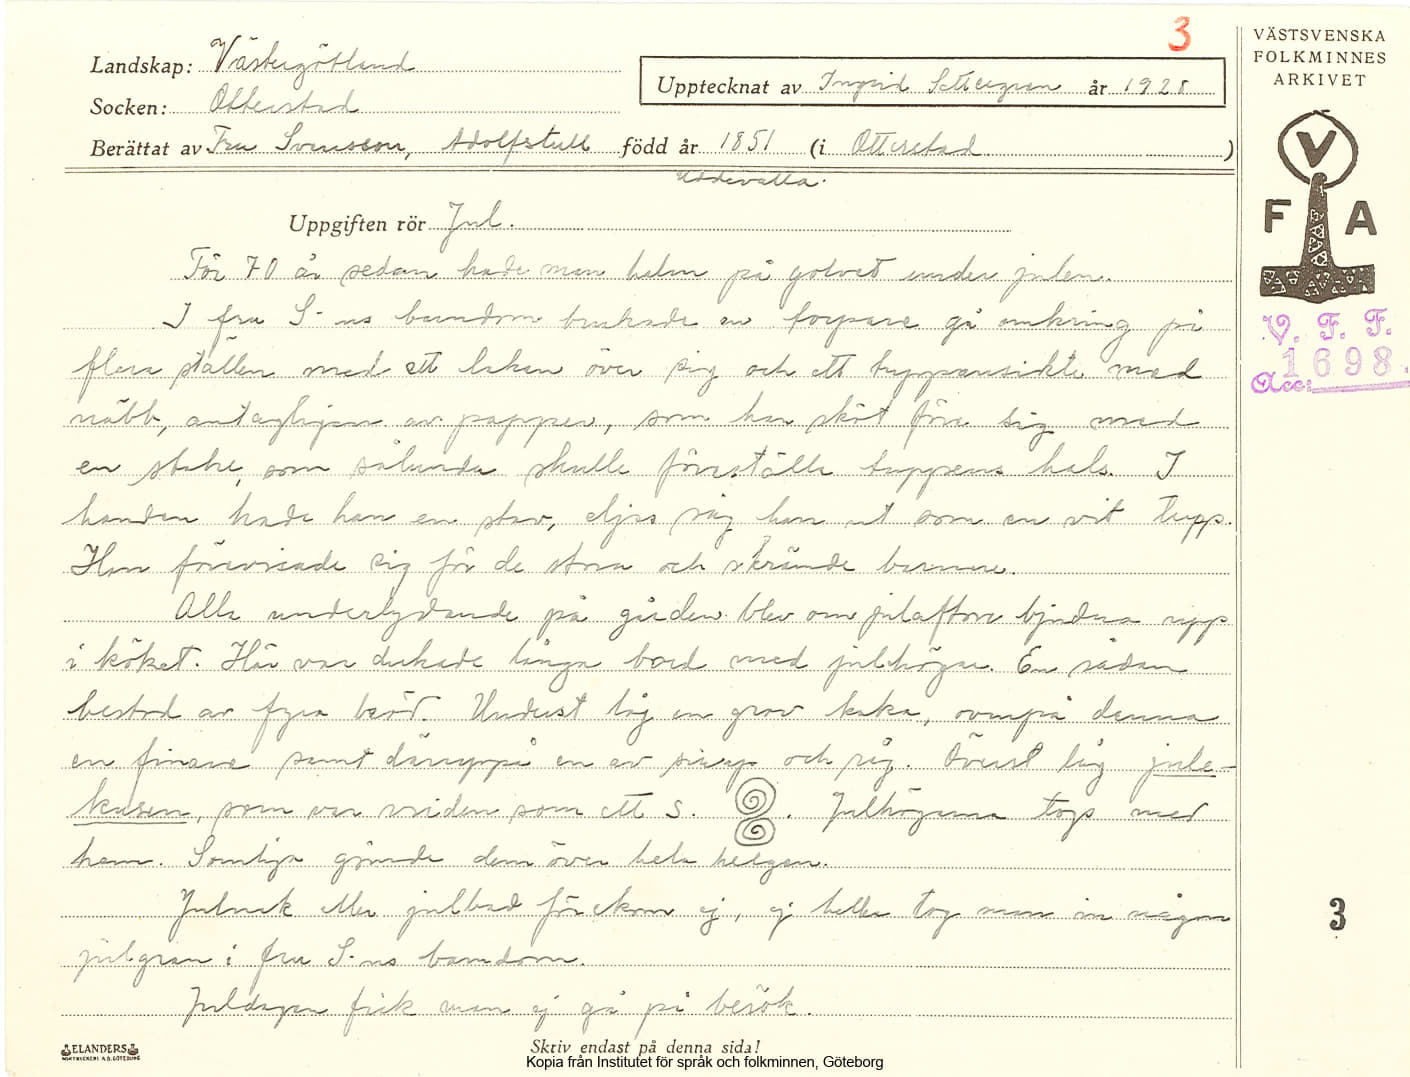 3
VÄSTSVENSKA
FOLKMINNES
ARKIVET
Landskap: Västergötland
Upptecknat av Ingrid år 1928
Socken: Otterstad
Berättat av Fru Svensson, Adolfstull född år 1851 (i Otterstad)
Uddevalla.
V
F A
Uppgiften rör Jul.
För 70 år sedan hade man halm på golvet under julen.
I fru S-ns barndom brukade en torpare gå omkring på
flera ställen med ett lakan över sig och ett tuppansikte med
näbb, antagligen av papper, som han sköt före sig med
en stake, som sålunda skulle föreställa tuppens hals. I
handen hade han en stav, eljes såg han ut som en vit tupp.
Han förevisade sig för de stora och skrämde barnen.
V. F. F.
Acc: 1698.
Alla underlydande på gården blev om julafton bjudna upp
i köket. Här var dukade långa bord med julhögar. En sådan
bestod av fyra bröd. Underst låg en grov kaka, ovanpå denna
en finare samt däruppå en av sirap och råg. Överst låg jule-
kusen, som var vriden som ett S. . Julhögarna togs med
hem. Somliga gömde dem över hela helgen.
Julnek eller julbad förekom ej, ej heller tog man in någon
julgran i fru S-ns barndom.
Juldagen fick man ej gå på besök.
3
ELANDERS
BOKTRYCKERI A.B. GÖTEBORG
Skriv endast på denna sida!
Kopia från Institutet för språk och folkminnen, Göteborg